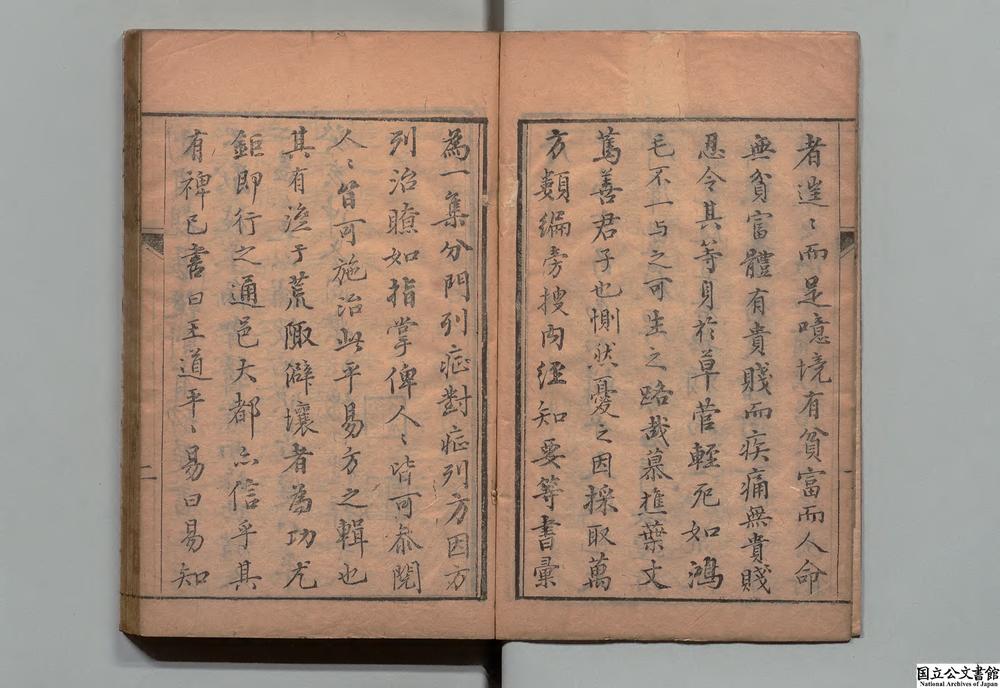 者逞〻而是噫境有貧富而人命
無貧富體有貴賤而疾痛無貴賤
忍令其等身於草菅輕死如鴻
毛不一与之可生之路哉慕樵葉丈
篤善君子也惻然憂之因採取萬
方類編旁搜内經知要等書彙
為一集分門列症對症列方因方
列治瞭如指掌俾人〻皆可叅閱
人〻皆可施治此平易方之輯也
其有濟于荒陬僻壤者為功尤
鉅即行之通邑大都亦信乎其
有裨已書曰王道平〻易曰易知
一
二
国立公文書館
National Archives of Japan